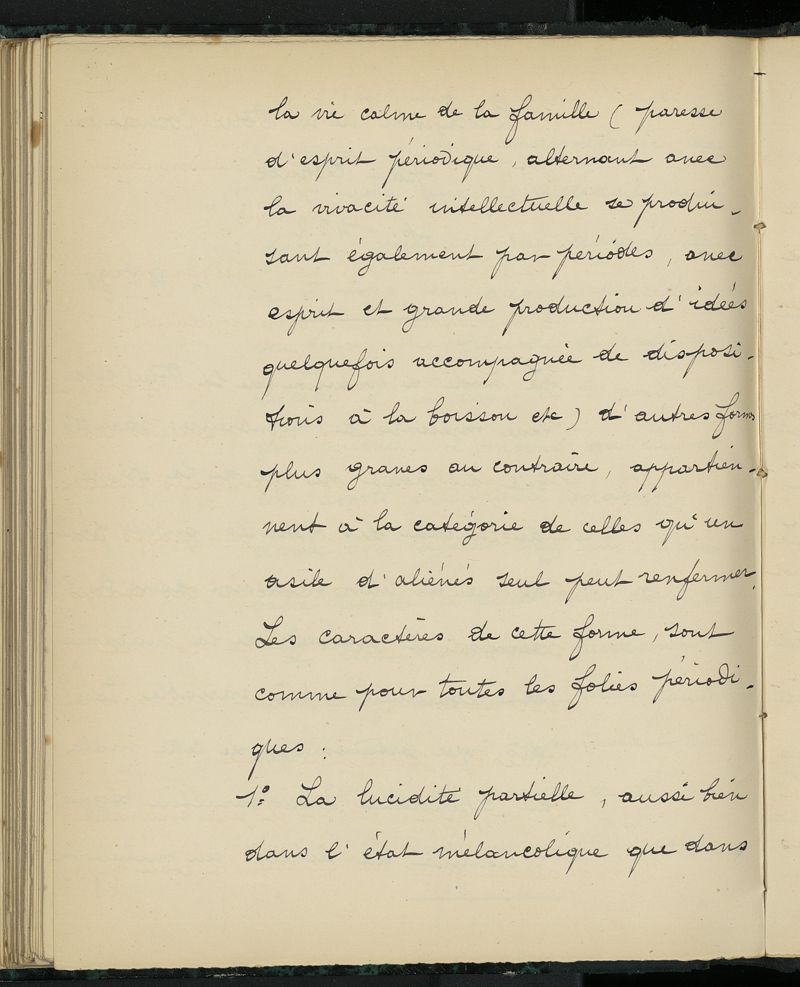 la vie calme de la famille ( paresse
d'esprit périodique, alternant avec
la vivacité intellectuelle se produi-
sant également par périodes, avec
esprit et grande production d'idées
quelquefois accompagnée de disposi-
tions à la boisson etc ) d'autres formes
plus graves au contraire, appartien-
nent à la catégorie de celles qu'un
asile d'aliénés seul peut renfermer.
Les caractères de cette forme, sont
comme pour toutes les folies périodi-
ques :
1º La lucidité partielle, aussi bien
dans l'état mélancolique que dans